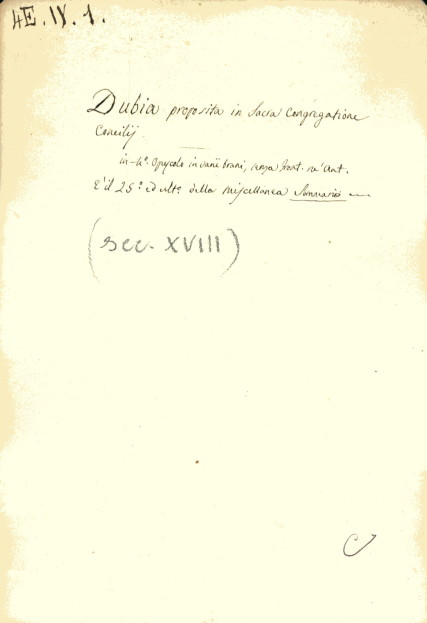 4E.IV.1.
Dubia proposita in Sacra Congregatione
Concilij
in-4º. Opuscolo in varii brani, senza front. nè Aut.
È il 25º ed ulto della Miscellanea Sommario
(sec. XVIII)